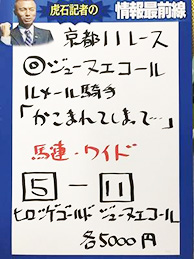 虎石記者の
情報最前線
京都11レース
◎ジューヌエコール
ルメール騎手
「かこまれてしまって…」
馬連・ワイド
5-11
ヒロシゲゴールド ジューヌエコール
各5000円